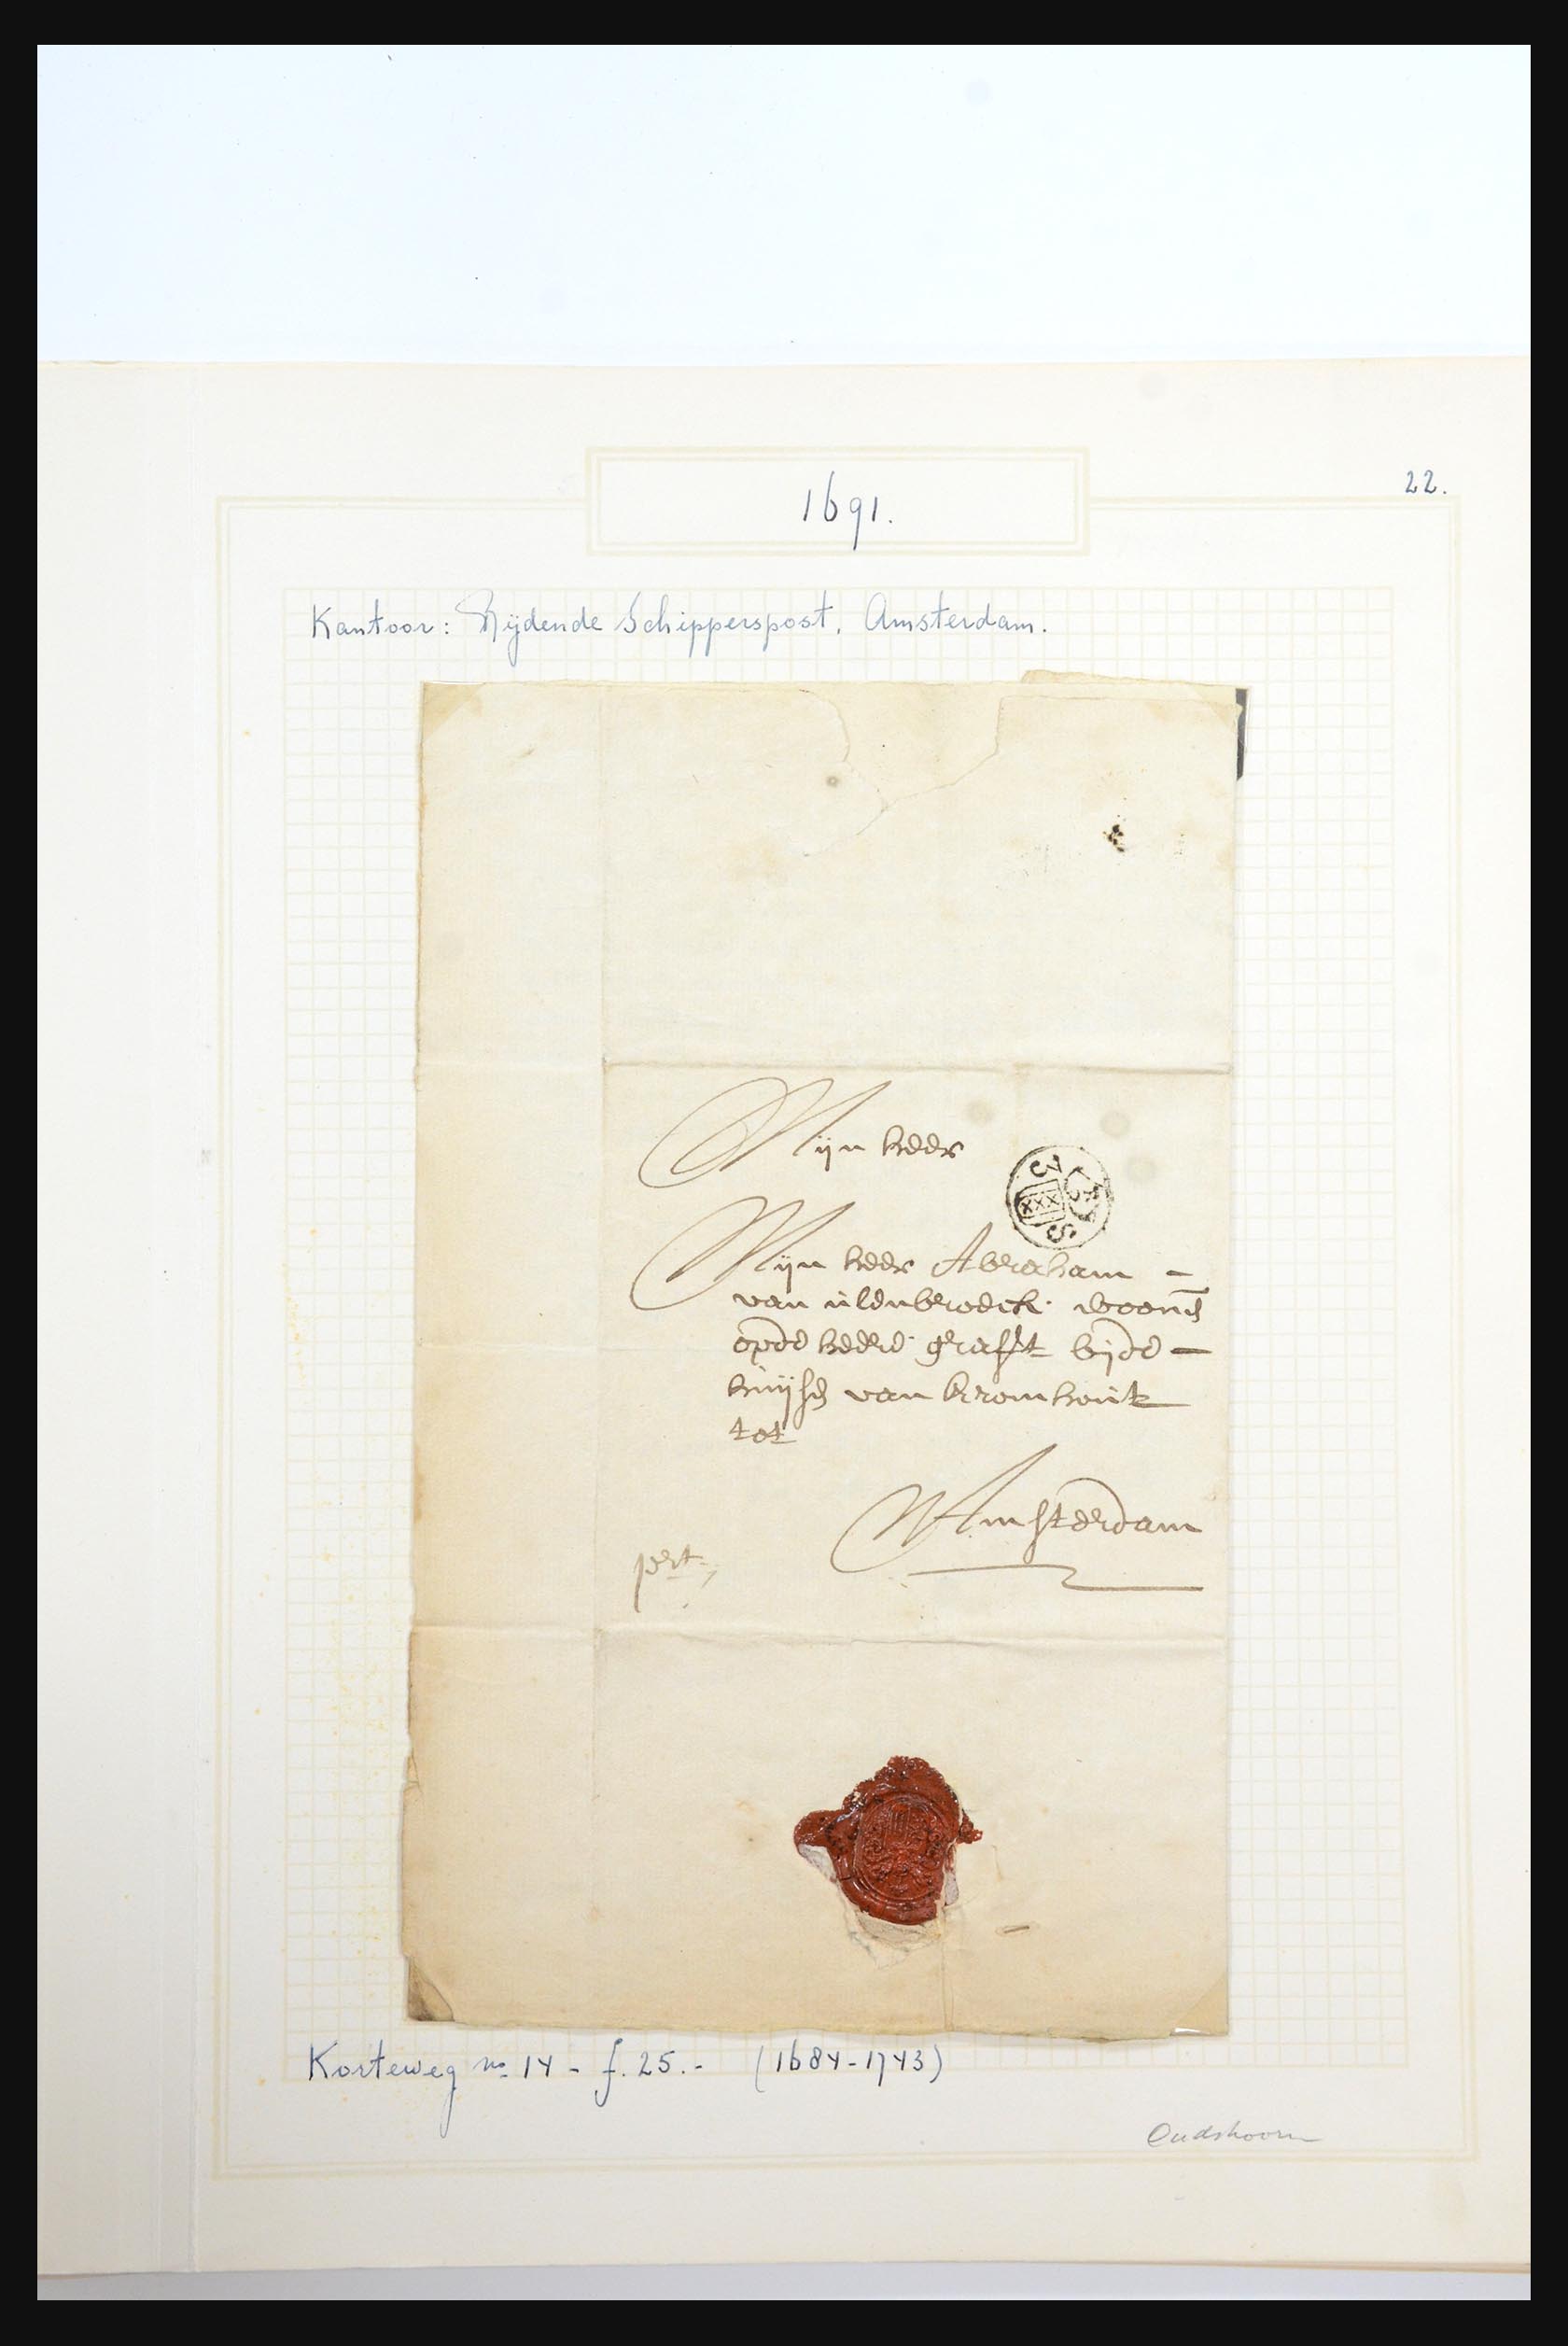 1691.
22.
Kantoor: Rijdende Schipperspost, Amsterdam.
Mijn heer
3 S
XXX
Mijn heer Abraham –
van uldnbroeck woond
opde heere grafft bijde –
huijse van kromhout
tot
Amsterdam
port
Korteweg no 14 - f. 25.- (1684-1743)
Oudshoorn